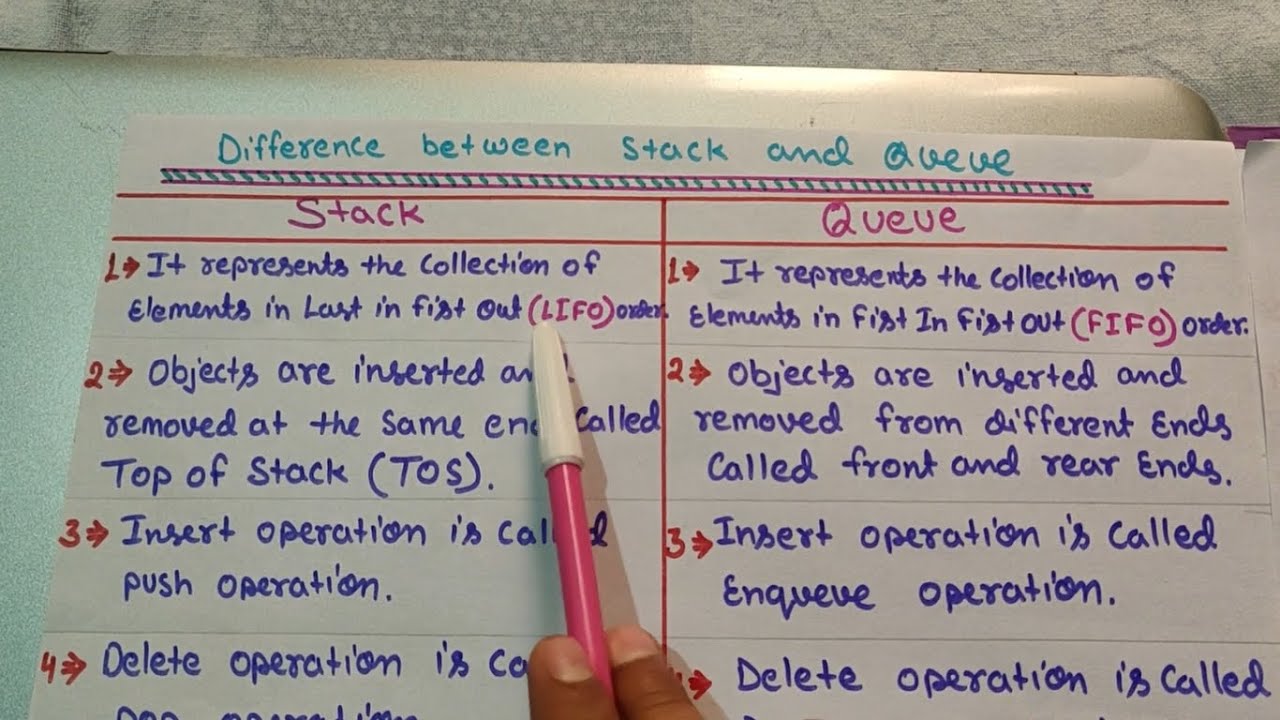 Difference between Stack and Queue
Stack
1⇒ It represents the Collection of
Elements in Last in first out (LIFO) order.
2⇒ Objects are inserted and
removed at the same end called
Top of Stack (TOS).
3⇒ Insert operation is called
push operation.
4⇒ Delete operation is
operation
Queue
1⇒ It represents the collection of
Elements in First In Fist out (FIFO) order.
2⇒ Objects are inserted and
removed from different Ends
Called front and rear Ends.
3⇒ Insert operation is called
Enqueue operation.
Delete operation is called